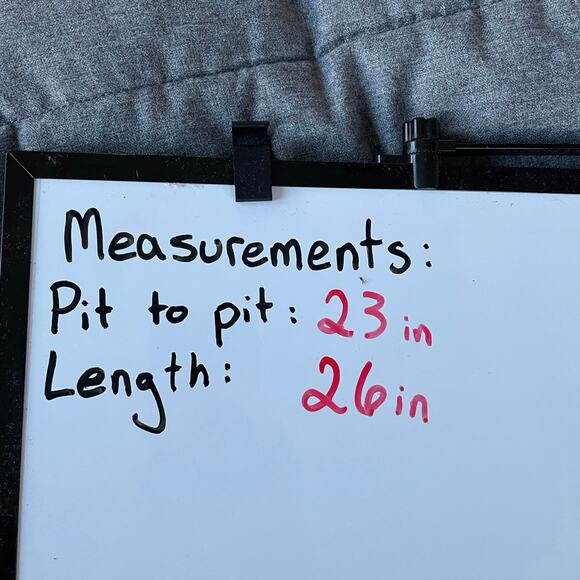 Measurements:
Pit to pit: 23 in
Length: 26 in